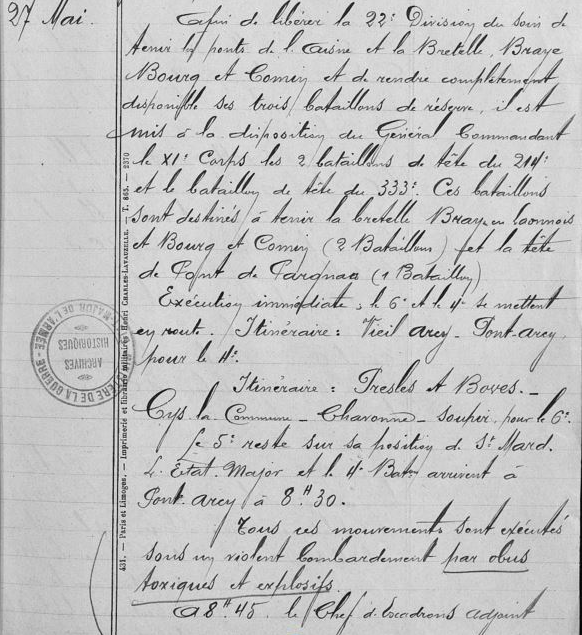 27 Mai.
Afin de libérer la 22e Division du soin de
tenir les ponts de l'Aisne et la Bretelle, Braye
Bourg et Comin et de rendre complètement
disponible ses trois bataillons de réserve, il est
mis à la disposition du Général Commandant
le XIe Corps les 2 bataillons de tête du 214e
et le bataillon de tête du 333e. Ces bataillons
sont destinés à tenir la bretelle Braye en Laonnois
et Bourg et Comin (2 Bataillons) et la tête
de Pont de Pargnan (1 Bataillon)
Exécution immédiate, le 6e et le 4e se mettent
en route. Itinéraire : Vieil Arcy - Pont-Arcy
pour le 4e.
Itinéraire : Presles et Boves. -
Cys la Commune - Chavonne - Soupir, pour le 6e.
Le 5e reste sur sa position de St Mard.
L'Etat-Major et le 4e Baton arrivent à
Pont-Arcy à 8H30.
Tous ces mouvements sont exécutés
sous un violent bombardement par obus
toxiques et explosifs
A 8H45, le Chef d'escadrons adjoint
431. — Paris et Limoges. — Imprimerie et librairie militaires Henri CHARLES-LAVAUZELLE. — T. 865. — 2370
MINISTÈRE DE LA GUERRE - ÉTAT-MAJOR DE L'ARMÉE
ARCHIVES
HISTORIQUES